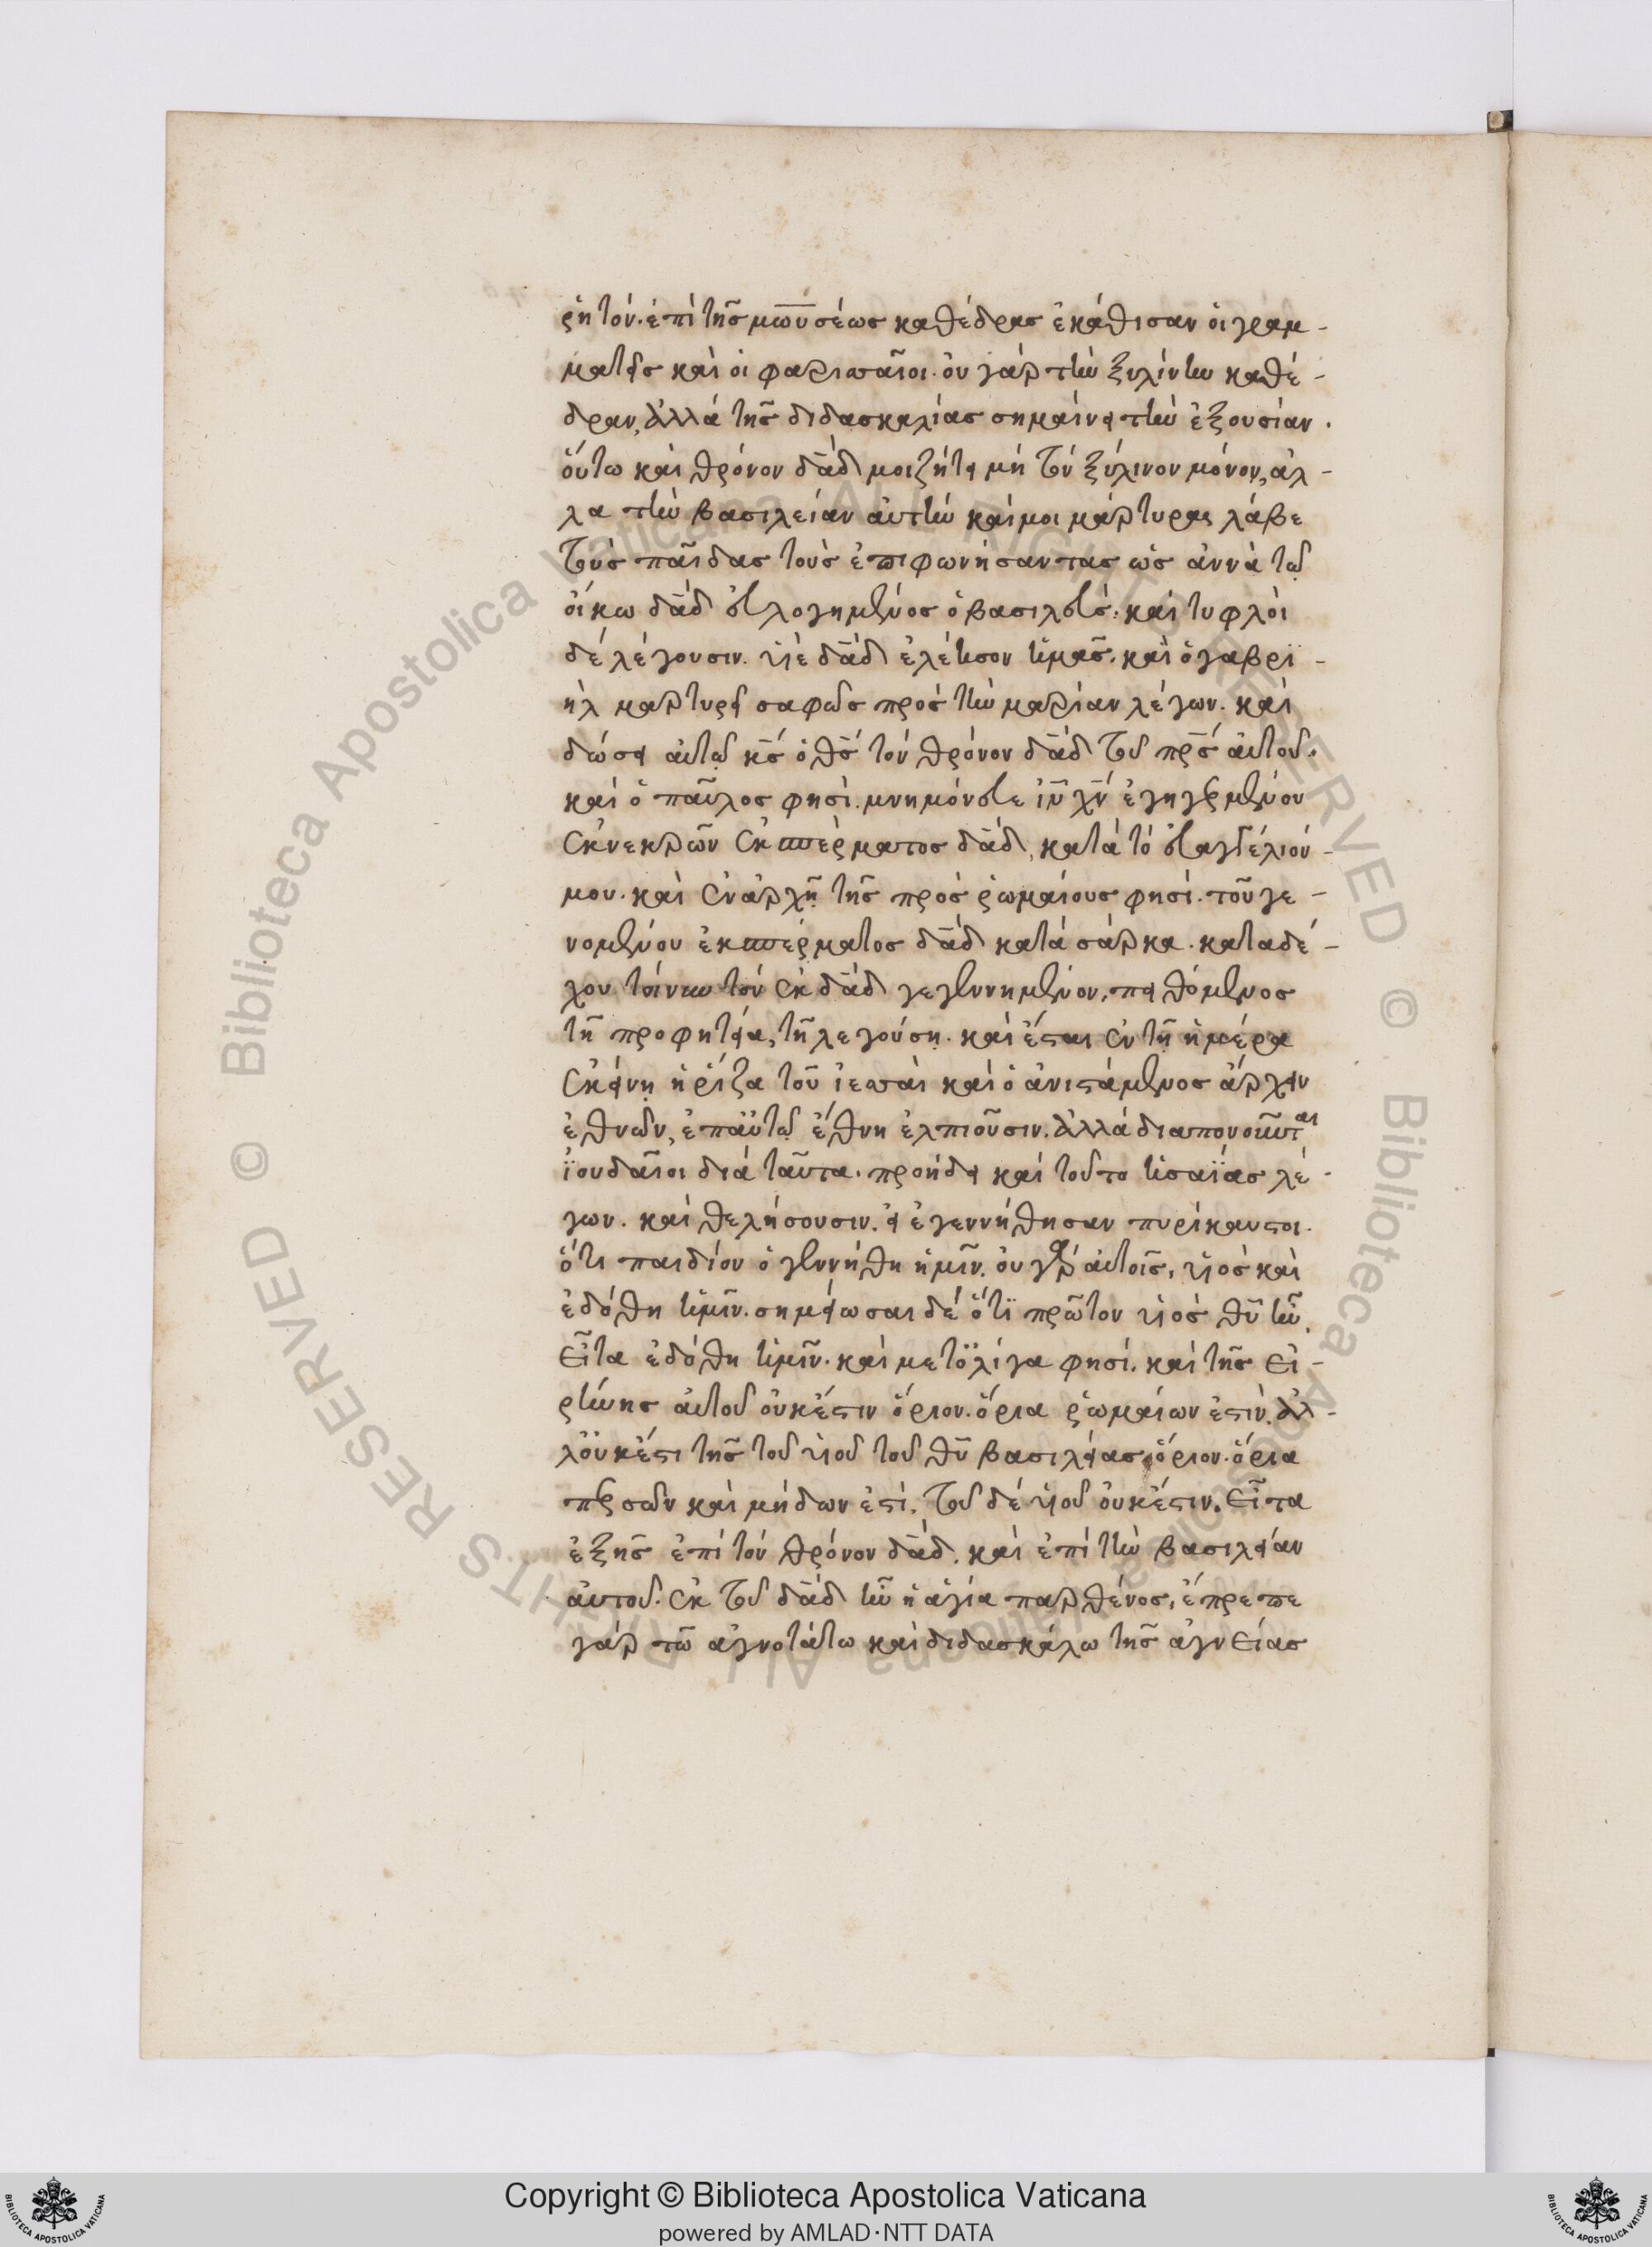 ῥητόν. ἐπὶ τῆς μωυσέως καθέδρας ἐκάθισαν οἱ γραμ-
ματεῖς καὶ οἱ φαρισαῖοι. οὐ γάρ τὴν ξυλίνην καθέ-
δραν, ἀλλά τῆς διδασκαλίας σημαίνει τὴν ἐξουσίαν.
οὕτω καὶ θρόνον δαδ μοι ζήτει μή τόν ξύλινον μόνον, ἀλ-
λα τὴν βασιλείαν αὐτὴν καί μοι μάρτυρας λάβε
τοὺς παῖδας τοὺς ἐπιφωνήσαντας ὡς ἀννὰ τῷ
οἴκω δαδ εὐλογημένος ὁ βασιλεύς. καὶ τυφλοὶ
δέ λέγουσιν. υἱὲ δαδ ἐλέησον ἡμᾶς. καὶ ὁ γαβρϊ-
ὴλ μαρτυρεῖ σαφῶς πρός τὴν μαρίαν λέγων. καὶ
δώσει αὐτῷ κς ὁ θς τόν θρόνον δαδ τοῦ πρς αὐτοῦ.
καί ὁ παῦλος φησὶ. μνημόνευε ιν χν ἐγηγερμένον
ἐκ νεκρῶν ἐκ σπέρματος δαδ, κατά τό εὐαγγέλιόν
μου. καὶ ἐν ἀρχῇ τῆς πρός ῥωμαίους φησί. τοῦ γε-
νομένου ἐκ σπέρματος δαδ κατά σάρκα. καταδέ-
χου τοίνυν τόν ἐκ δαδ γεγεννημένον, πειθόμενος
τῇ προφητεία, τῇ λεγούσῃ. καὶ ἔσται ἐν τῇ ἡμέρα
ἐκείνῃ ἡ ῥίζα τοῦ ἰεσσαὶ καὶ ὁ ἀνιστάμενος ἄρχειν
ἐθνῶν, ἐπ αὐτῷ ἔθνη ἐλπιοῦσιν. ἀλλά διαπονοῦνται
ἰουδαῖοι διά ταῦτα. προήδει καί τοῦτο ἡσαΐας λέ-
γων. καί θελήσουσιν. εἰ ἐγεννήθησαν πυρίκαυστοι.
ὅτι παιδίον ἐγεννήθη ἡμῖν. οὐ γάρ αὐτοῖς, υἱὸς καὶ
ἐδόθη ἡμῖν. σημείωσαι δέ ὅτϊ πρῶτον υἱὸς θῦ ἦν.
εἶτα ἐδόθη ἡμῖν. καὶ μετ ὀλίγα φησί. καί τῆς εἰ-
ρήνης αὐτοῦ οὐκ ἔστιν ὅριον. ὅρια ῥωμαίων ἐστιν. ἀλ-
λ οὐκ ἔστι τῆς τοῦ υἱοῦ τοῦ θῦ βασιλείας ὅριον. ὅρια
περσῶν καὶ μήδων ἐστί. τοῦ δέ υἱοῦ οὐκ ἔστιν. εἶτα
ἑξῆς ἐπί τόν θρόνον δαδ. καὶ ἐπί τὴν βασιλείαν
αὐτοῦ. ἐκ τοῦ δαδ ἦν ἡ ἁγία παρθένος, ἔπρεπε
γάρ τῶ ἁγνοτάτω καὶ διδασκάλω τῆς ἁγνείας